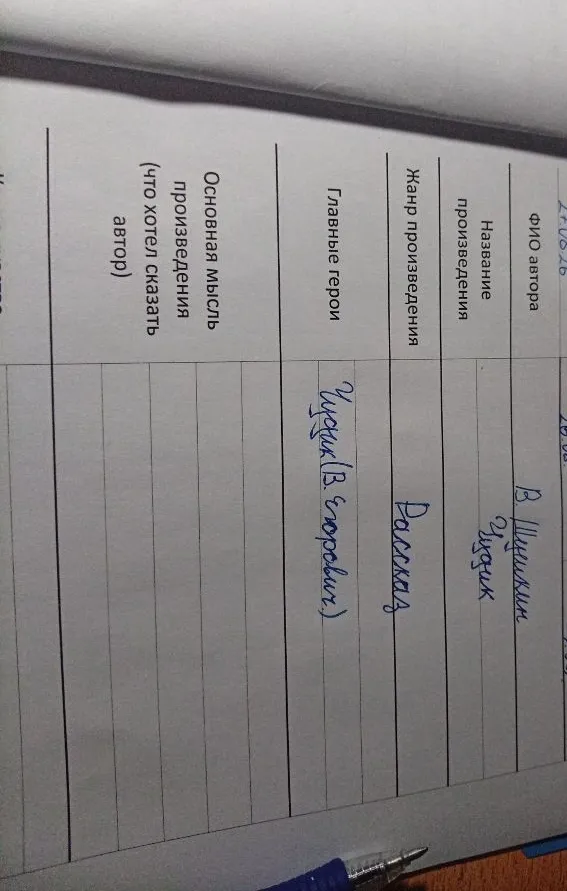 ФИО автора
В. Шукшин
Название
произведения
Чудик
Жанр произведения
Рассказ
Главные герои
Чудик (В. Егорович.)
Основная мысль
произведения
(что хотел сказать
автор)